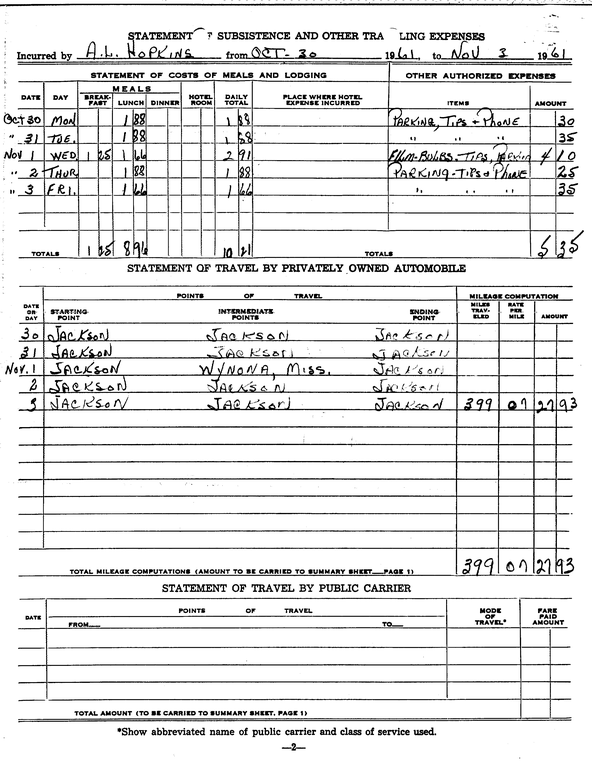 STATEMENT F SUBSISTENCE AND OTHER TRA LING EXPENSES
Incurred by A.L. HOPKINS from OCT-30 1961, to NOV 3 1961
STATEMENT OF COSTS OF MEALS AND LODGING OTHER AUTHORIZED EXPENSES
MEALS
DATE DAY BREAK-FAST LUNCH DINNER HOTEL ROOM DAILY TOTAL PLACE WHERE HOTEL EXPENSE INCURRED ITEMS AMOUNT
Oct 30 MON 1 88 1 88 PARKING, TIPS + PHONE 30
" 31 TUE. 1 88 1 88 " " " 35
NOV 1 WED 1 25 1 66 2 91 FILM-BULBS-TIPS, PARKING 4 10
" 2 THUR 1 88 1 88 PARKING-TIPS & PHONE 25
" 3 FRI. 1 66 1 66 " " " 35
TOTALS 1 25 8 96 10 21 TOTALS 5 35
STATEMENT OF TRAVEL BY PRIVATELY OWNED AUTOMOBILE
POINTS OF TRAVEL MILEAGE COMPUTATION
DATE OR DAY STARTING POINT INTERMEDIATE POINTS ENDING POINT MILES TRAV-ELED RATE PER MILE AMOUNT
30 JACKSON JACKSON JACKSON
31 JACKSON JACKSON JACKSON
NOV. 1 JACKSON WYNONA, MISS. JACKSON
2 JACKSON JACKSON JACKSON
3 JACKSON JACKSON JACKSON 399 07 27 93
TOTAL MILEAGE COMPUTATIONS (AMOUNT TO BE CARRIED TO SUMMARY SHEET—PAGE 1) 399 07 27 93
STATEMENT OF TRAVEL BY PUBLIC CARRIER
DATE POINTS OF TRAVEL MODE OF TRAVEL* FARE PAID AMOUNT
FROM— TO—
TOTAL AMOUNT (TO BE CARRIED TO SUMMARY SHEET, PAGE 1)
*Show abbreviated name of public carrier and class of service used.
—2—